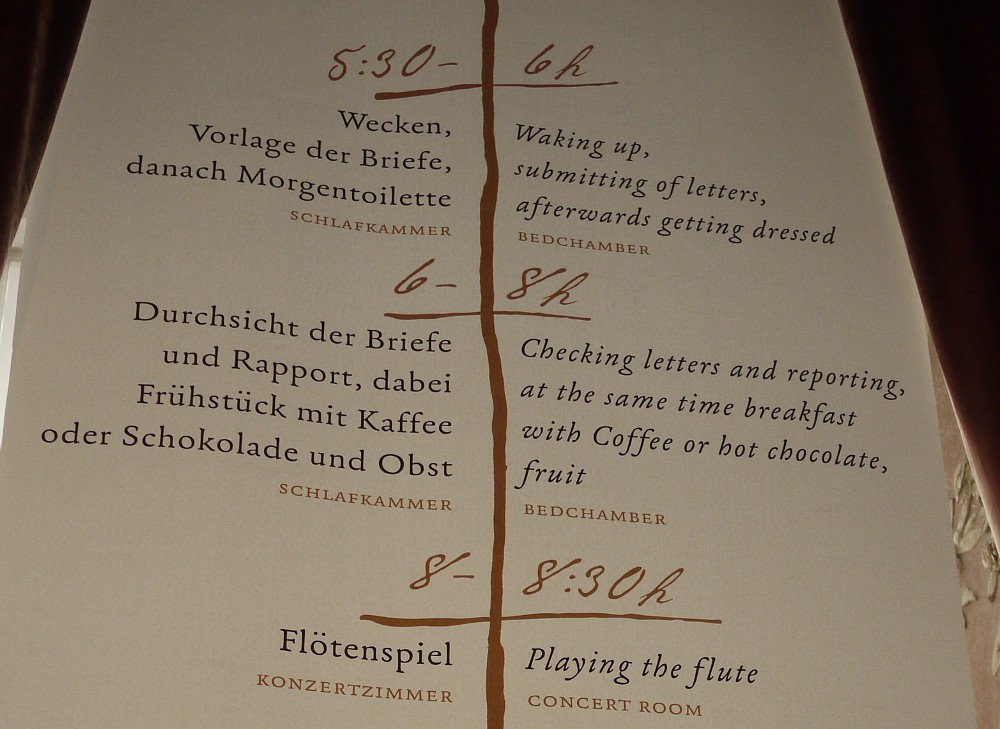 5:30– 6h
Wecken,
Vorlage der Briefe,
danach Morgentoilette
SCHLAFKAMMER
Waking up,
submitting of letters,
afterwards getting dressed
BEDCHAMBER
6– 8h
Durchsicht der Briefe
und Rapport, dabei
Frühstück mit Kaffee
oder Schokolade und Obst
SCHLAFKAMMER
Checking letters and reporting,
at the same time breakfast
with Coffee or hot chocolate,
fruit
BEDCHAMBER
8– 8:30h
Flötenspiel
KONZERTZIMMER
Playing the flute
CONCERT ROOM